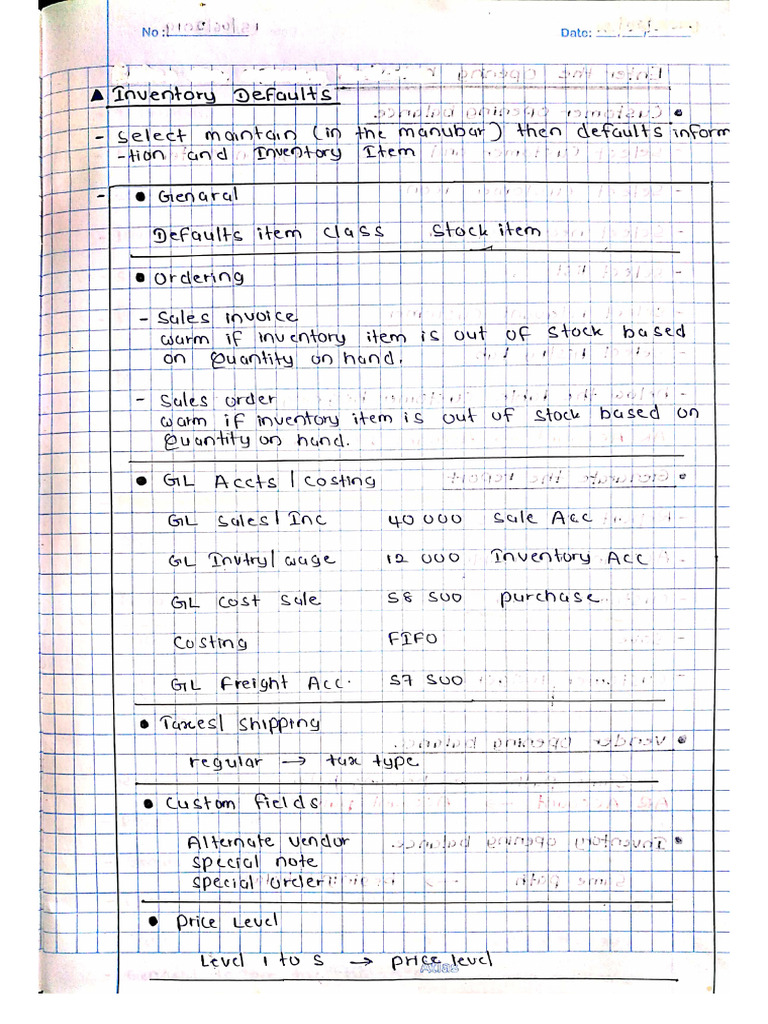 No :
Date:
▲ Inventory Defaults
- select maintain (in the manubar) then defaults inform
-tion and Inventory Item
- • Genaral
Defaults item class stock item
• Ordering
- Sales invoice
warm if inventory item is out of stock based
on Quantity on hand.
- Sales order
warm if inventory item is out of stock based on
Quantity on hand.
• GL Accts / Costing
GL Sales/Inc 40 000 sale Acc
GL Invtry/wage 12 000 Inventory Acc
GL Cost Sale 58 500 purchase
Costing FIFO
GL Freight Acc. 57 500
• Taxes/ shipping
regular → tax type
• Custom fields
Alternate vendor
special note
special order
• Price Level
Level 1 to 5 → price level
Atlas